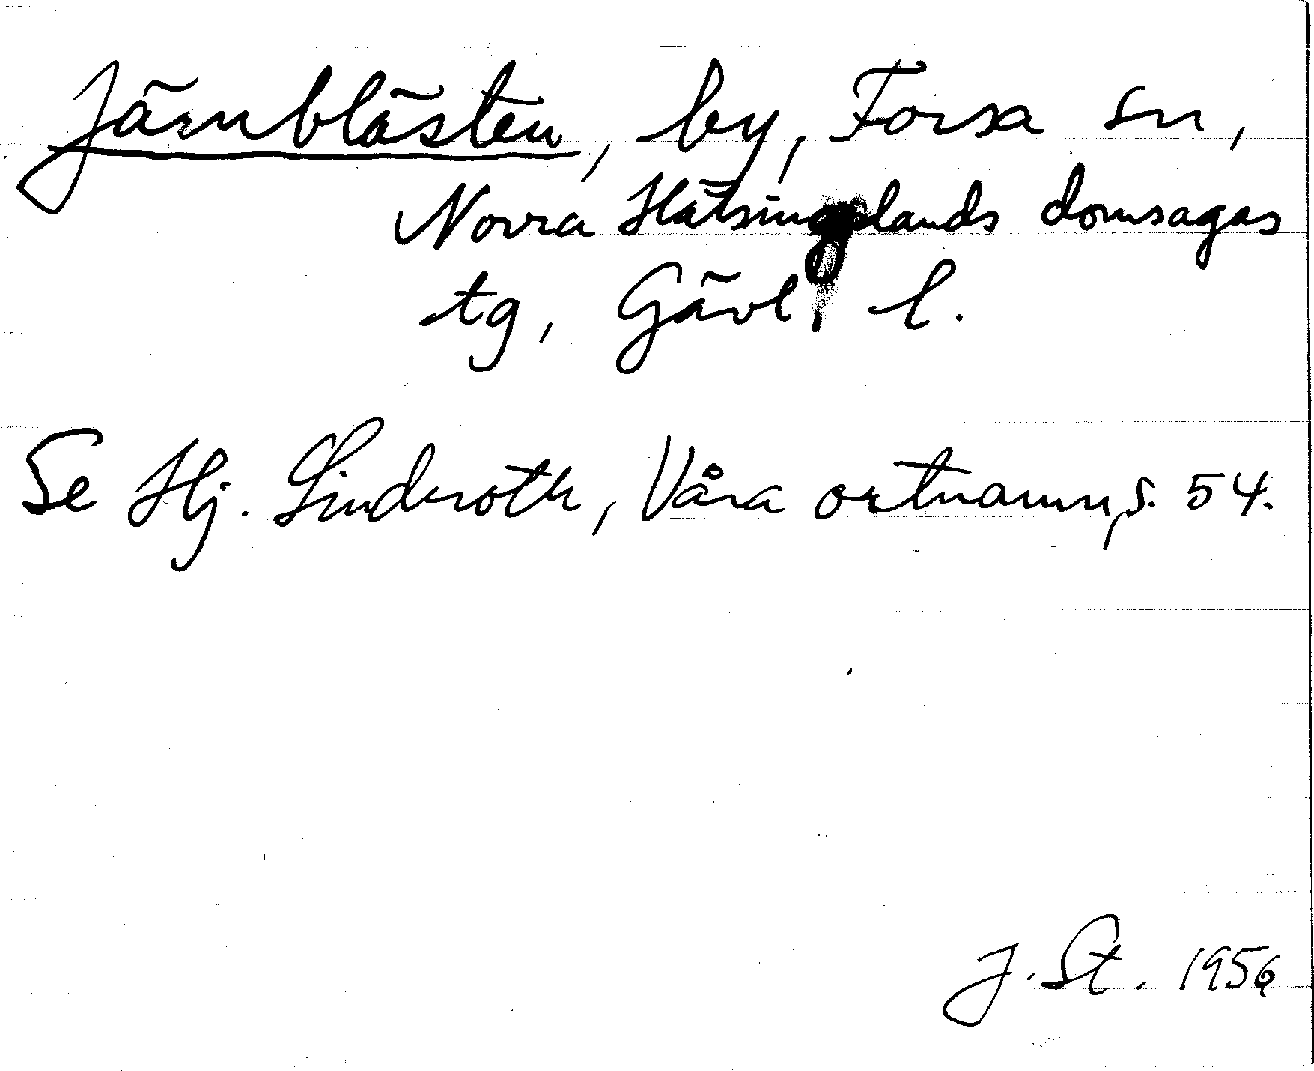 Järnblästen, by, Forsa sn,
Norra Hälsinglands domsagas
tg, Gävl. l.
Se Hj. Lindroth, Våra ortnamn, s. 54.
J. St. 1956